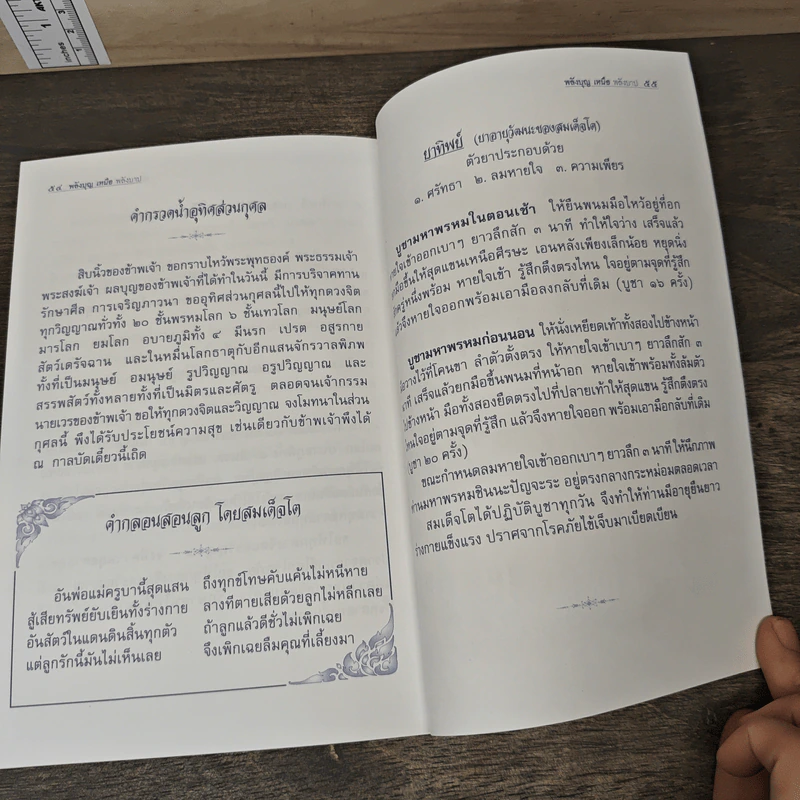 ๕๔ พลังบุญ เหนือ พลังบาป
คำกรวดน้ำอุทิศส่วนกุศล
สิบนิ้วของข้าพเจ้า ขอกราบไหว้พระพุทธองค์ พระธรรมเจ้า
พระสงฆ์เจ้า ผลบุญของข้าพเจ้าที่ได้ทำในวันนี้ มีการบริจาคทาน
รักษาศีล การเจริญภาวนา ขออุทิศส่วนกุศลนี้ไปให้ทุกดวงจิต
ทุกวิญญาณทั่วทั้ง ๒๐ ชั้นพรหมโลก ๖ ชั้นเทวโลก มนุษย์โลก
มารโลก ยมโลก อบายภูมิทั้ง ๔ มีนรก เปรต อสูรกาย
สัตว์เดรัจฉาน และในหมื่นโลกธาตุกับอีกแสนจักรวาลพิภพ
ทั้งที่เป็นมนุษย์ อมนุษย์ รูปวิญญาณ อรูปวิญญาณ และ
สรรพสัตว์ทั้งหลายทั้งที่เป็นมิตรและศัตรู ตลอดจนเจ้ากรรม
นายเวรของข้าพเจ้า ขอให้ทุกดวงจิตและวิญญาณ จงโมทนาในส่วน
กุศลนี้ พึงได้รับประโยชน์ความสุข เช่นเดียวกับข้าพเจ้าพึงได้
ณ กาลบัดเดี๋ยวนี้เถิด
คำกลอนสอนลูก โดยสมเด็จโต
อันพ่อแม่ครูบานี้สุดแสน ถึงทุกข์โทษคับแค้นไม่หนีหาย
สู้เสียทรัพย์ยับเยินทั้งร่างกาย ลางทีตายเสียด้วยลูกไม่หลีกเลย
อันสัตว์ในแดนดินสิ้นทุกตัว ถ้าลูกแล้วดีชั่วไม่เพิกเฉย
แต่ลูกรักนี้มันไม่เห็นเลย จึงเพิกเฉยลืมคุณที่เลี้ยงมา
พลังบุญ เหนือ พลังบาป ๕๕
ยาทิพย์ (ยาอายุวัฒนะของสมเด็จโต)
ตัวยาประกอบด้วย
๑. ศรัทธา ๒. ลมหายใจ ๓. ความเพียร
บูชามหาพรหมในตอนเช้า ให้ยืนพนมมือไหว้อยู่ที่อก
หายใจเข้าออกเบาๆ ยาวลึกสัก ๓ นาที ทำให้ใจว่าง เสร็จแล้ว
มือขึ้นให้สุดแขนเหนือศีรษะ เอนหลังเพียงเล็กน้อย หยุดนิ่ง
ครู่หนึ่งพร้อม หายใจเข้า รู้สึกตึงตรงไหน ใจอยู่ตามจุดที่รู้สึก
แล้วจึงหายใจออกพร้อมเอามือลงกลับที่เดิม (บูชา ๑๖ ครั้ง)
บูชามหาพรหมก่อนนอน ให้นั่งเหยียดเท้าทั้งสองไปข้างหน้า
วางไว้ที่โคนขา ลำตัวตั้งตรง ให้หายใจเข้าเบาๆ ยาวลึกสัก ๓
นาที เสร็จแล้วยกมือขึ้นพนมที่หน้าอก หายใจเข้าพร้อมทั้งล้มตัว
ไปข้างหน้า มือทั้งสองยืดตรงไปที่ปลายเท้าให้สุดแขน รู้สึกตึงตรง
ไหนใจอยู่ตามจุดที่รู้สึก แล้วจึงหายใจออก พร้อมเอามือกลับที่เดิม
(บูชา ๒๐ ครั้ง)
ขณะกำหนดลมหายใจเข้าออกเบาๆ ยาวลึก ๓ นาที ให้นึกภาพ
ท่านมหาพรหมชินนะปัญจะระ อยู่ตรงกลางกระหม่อมตลอดเวลา
สมเด็จโตได้ปฏิบัติบูชาทุกวัน จึงทำให้ท่านมีอายุยืนยาว
ร่างกายแข็งแรง ปราศจากโรคภัยไข้เจ็บมาเบียดเบียน